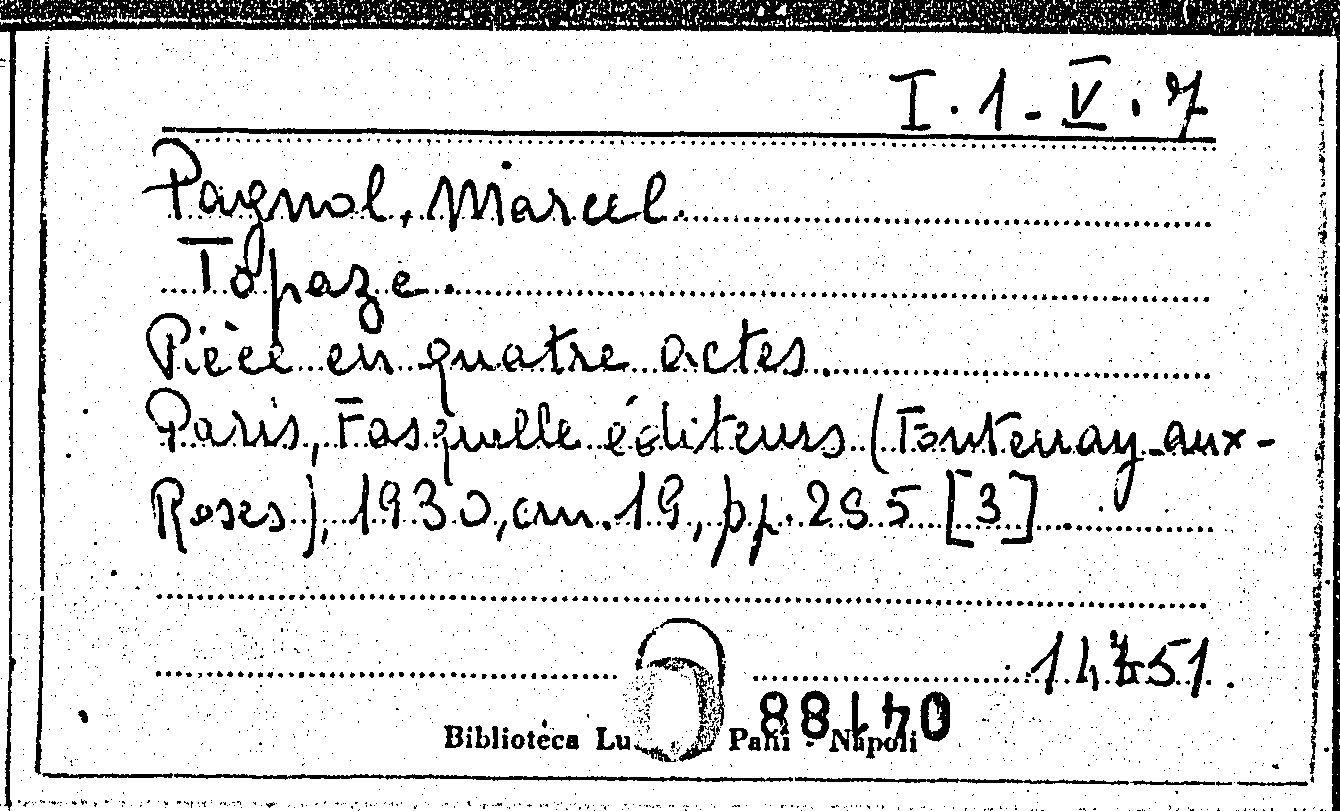 I.1-V.7
Pagnol, Marcel.
Topaze.
Pièce en quatre actes.
Paris, Fasquelle éditeurs (Fontenay-aux-
Roses), 1930, cm. 19, pp. 295 [3].
04188
Biblioteca Pani - Napoli